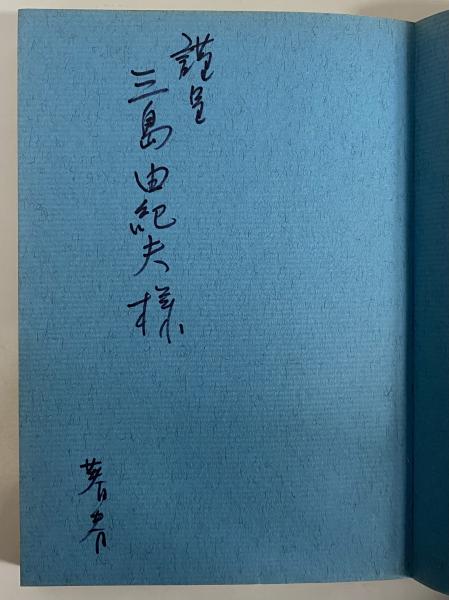 謹呈
三島由紀夫様
著者